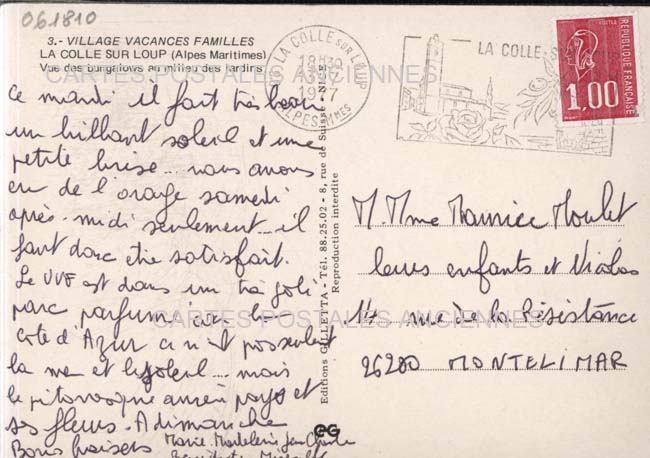 061810
3.- VILLAGE VACANCES FAMILLES
LA COLLE SUR LOUP (Alpes Maritimes)
Vue des bungalows au milieu des jardins
LA COLLE SUR LOUP
18H30
1977
ALPES-MMES
LA COLLE-S
REPUBLIQUE FRANÇAISE
1,00
CARTES POSTALES ANCIENNES
Ce mardi il fait très beau
un brillant soleil et une
petite brise... nous avons
eu de l'orage samedi
après-midi seulement... il
faut donc être satisfait.
Le VVF est dans un très joli
parc parfumé, car la
côte d'Azur ce n'est pas seulement
la mer et le soleil... mais
le pittoresque arrière pays et
ses fleurs. A dimanche
Bons baisers Marie-Madeleine Jean Charles
Bénédicte
Editions GILLETTA - Tél. 88.25.02 - 8, rue de Suisse - NICE
Reproduction interdite
EG
M. Mme Maurice Moulet
leurs enfants et Nicolas
14 rue de la Résistance
26200 MONTELIMAR
CARTES POSTALES ANCIENNES